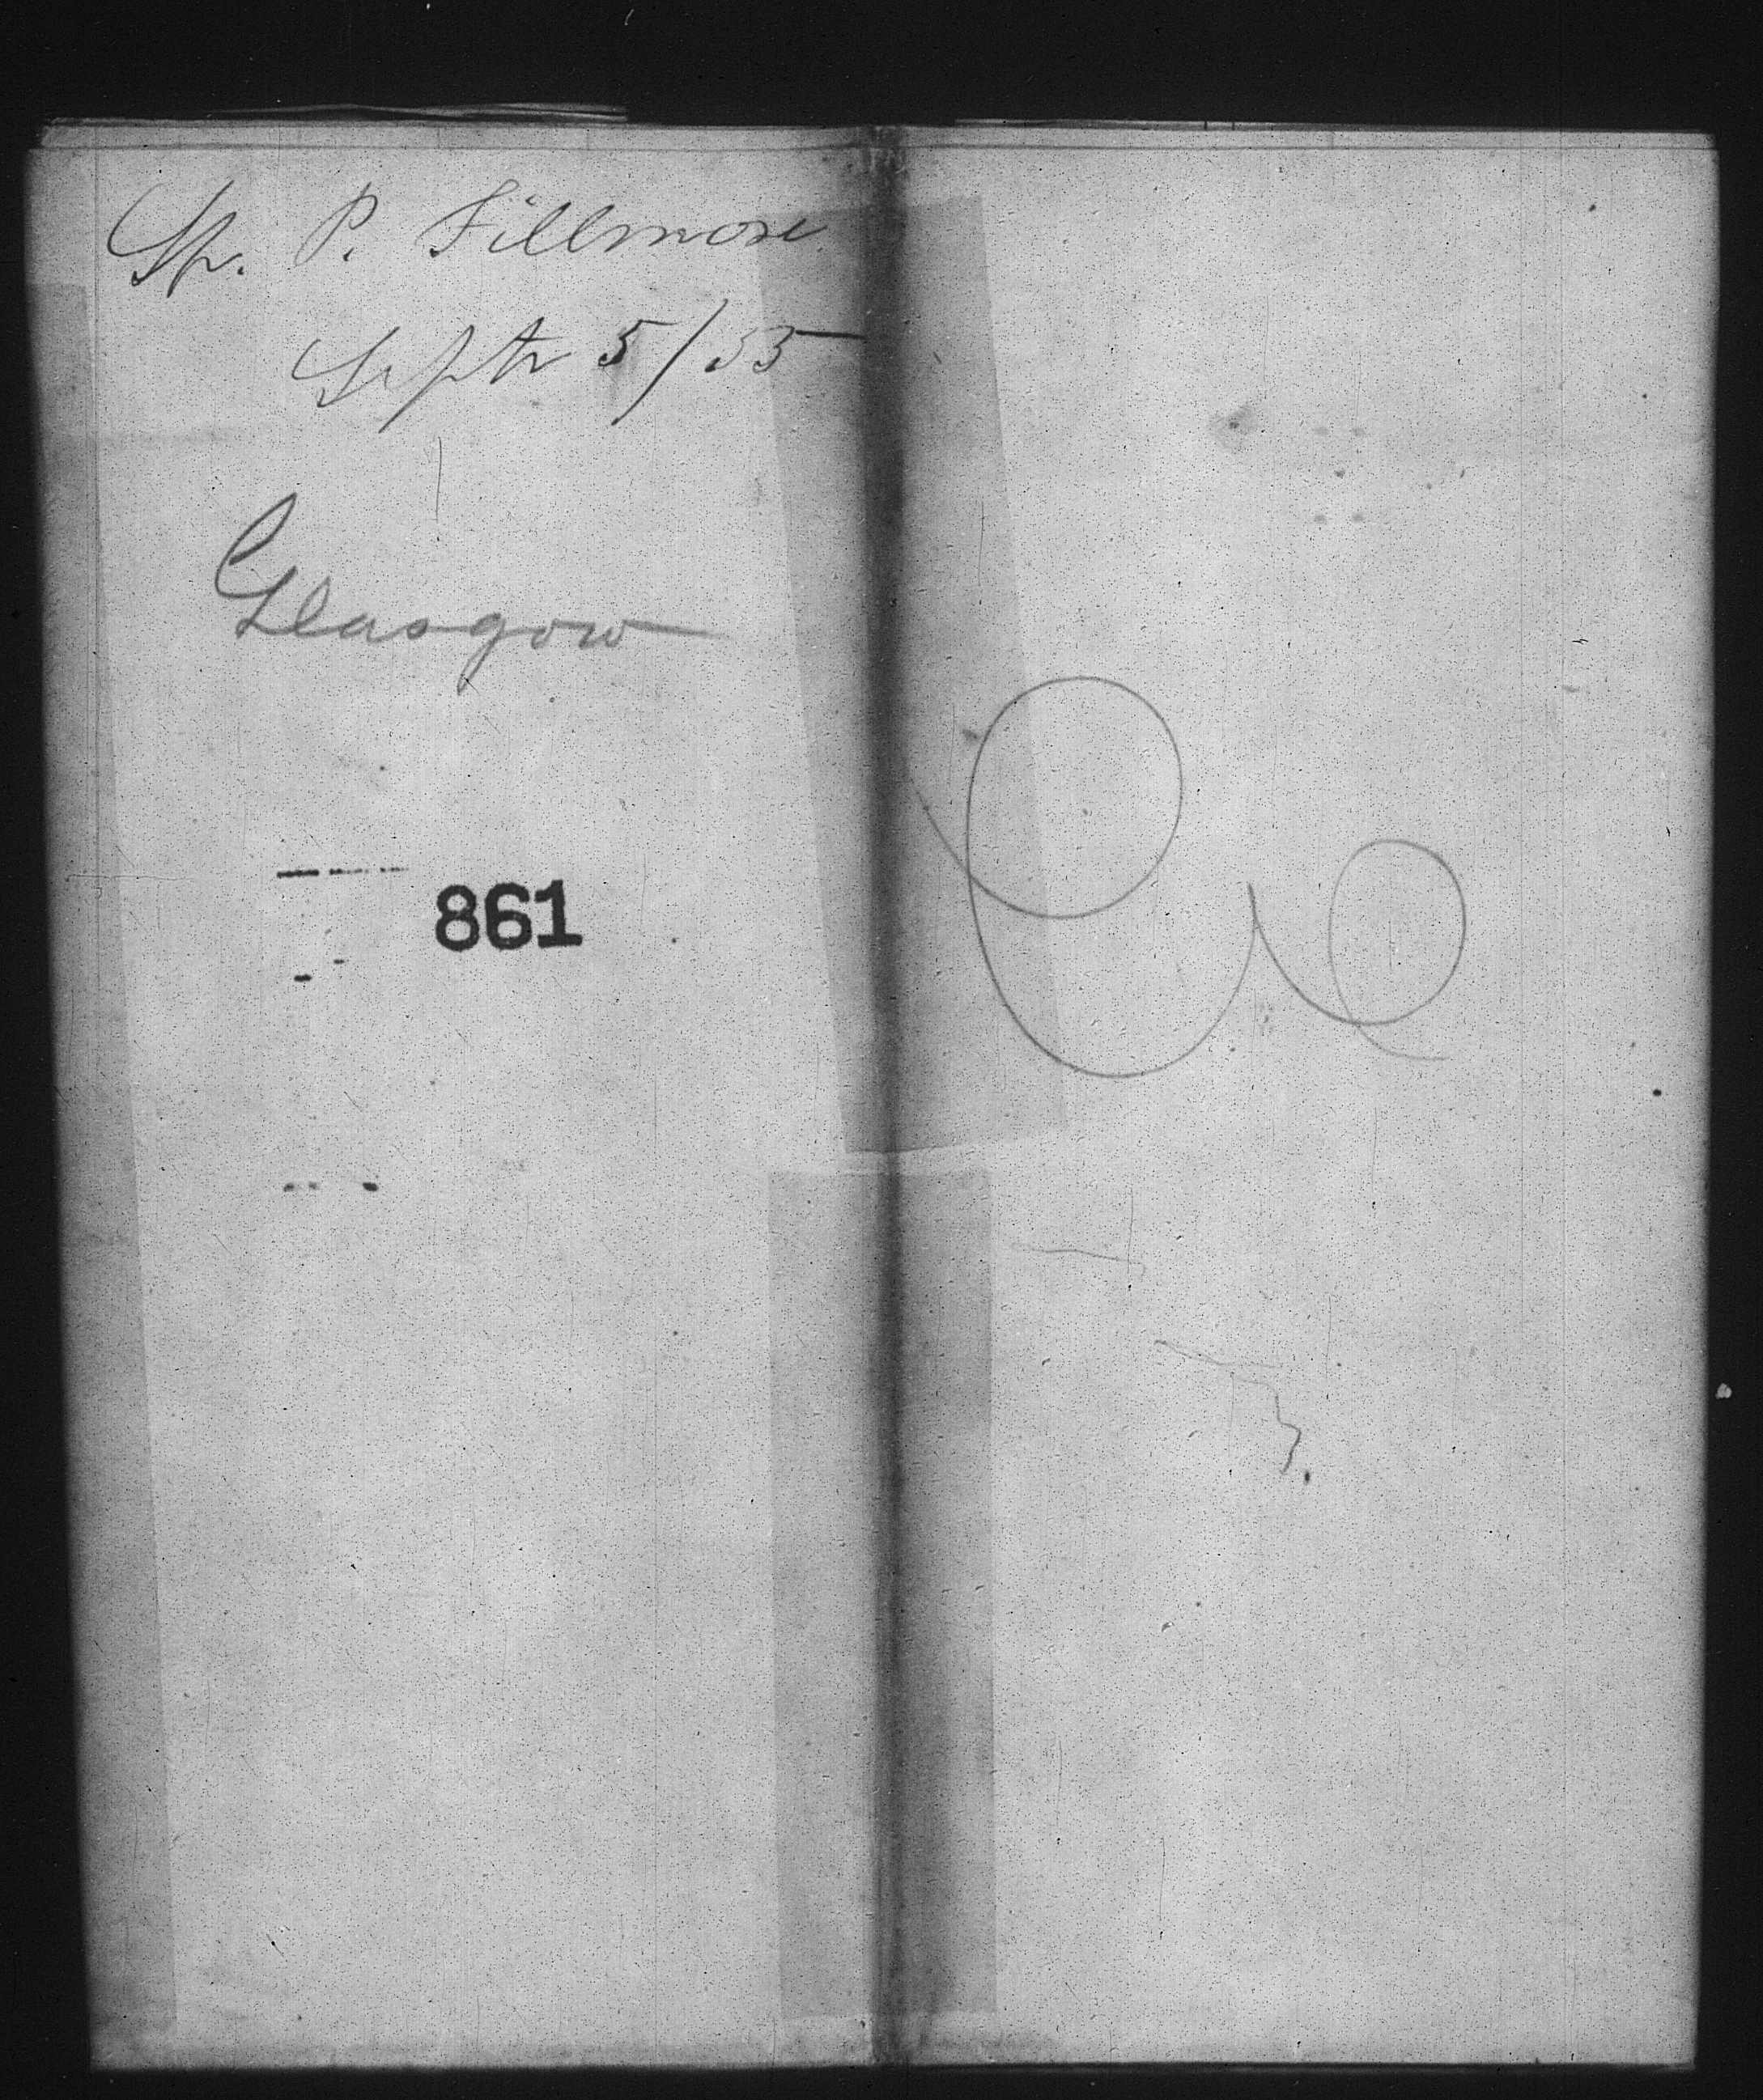 Sh. P. Fillmore
Septr 5/55
Glasgow
861